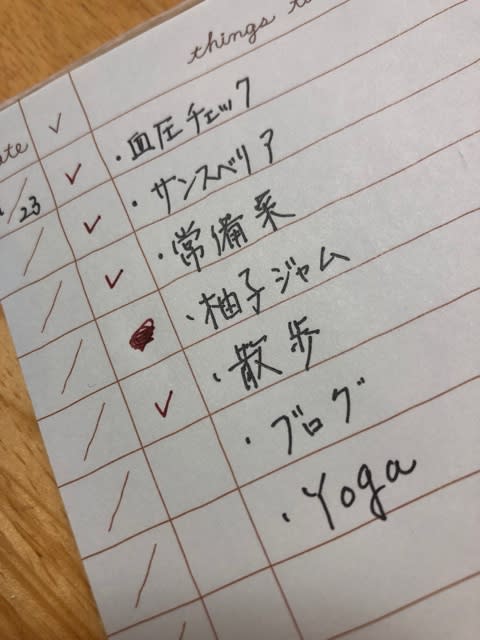 things
✓
/23
・血圧チェック
・サンスベリア
・常備菜
・柚子ジャム
・散歩
・ブログ
・Yoga